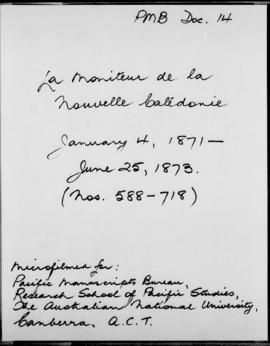 PMB Doc. 14
La Moniteur de la
Nouvelle Calédonie
January 4, 1871—
June 25, 1873.
(Nos. 588-718)
Microfilmed for:
Pacific Manuscripts Bureau,
Research School of Pacific Studies,
The Australian National University,
Canberra, A.C.T.